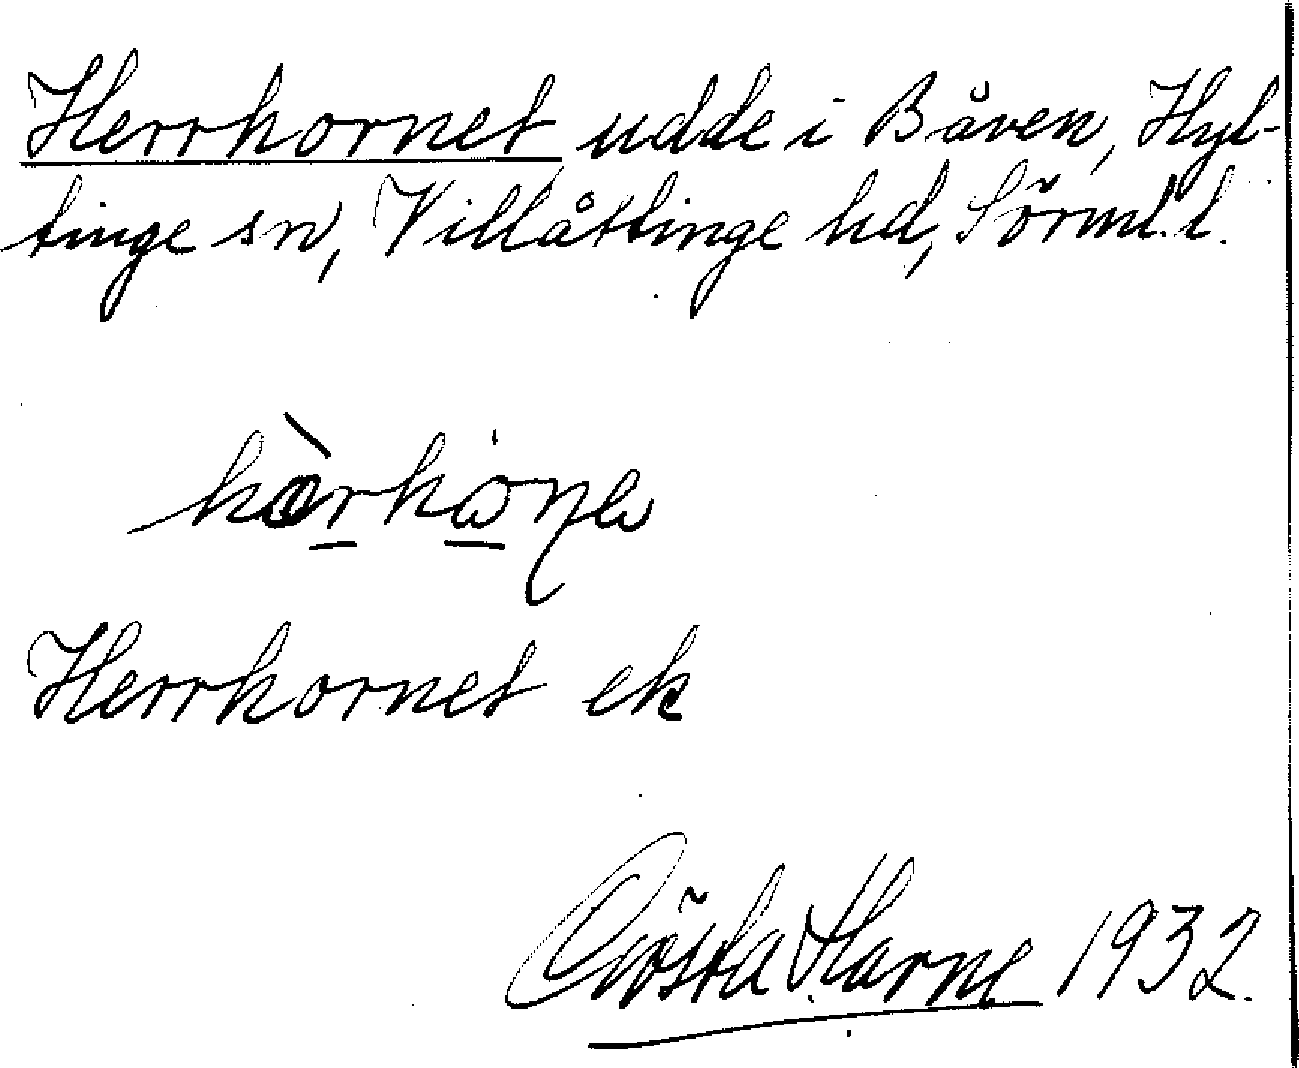 Herrhornet udde i Båven, Hyl-
tinge sn, Villåttinge hd, Sörml. l.
Herrhornet ek
Gösta Harne 1932.